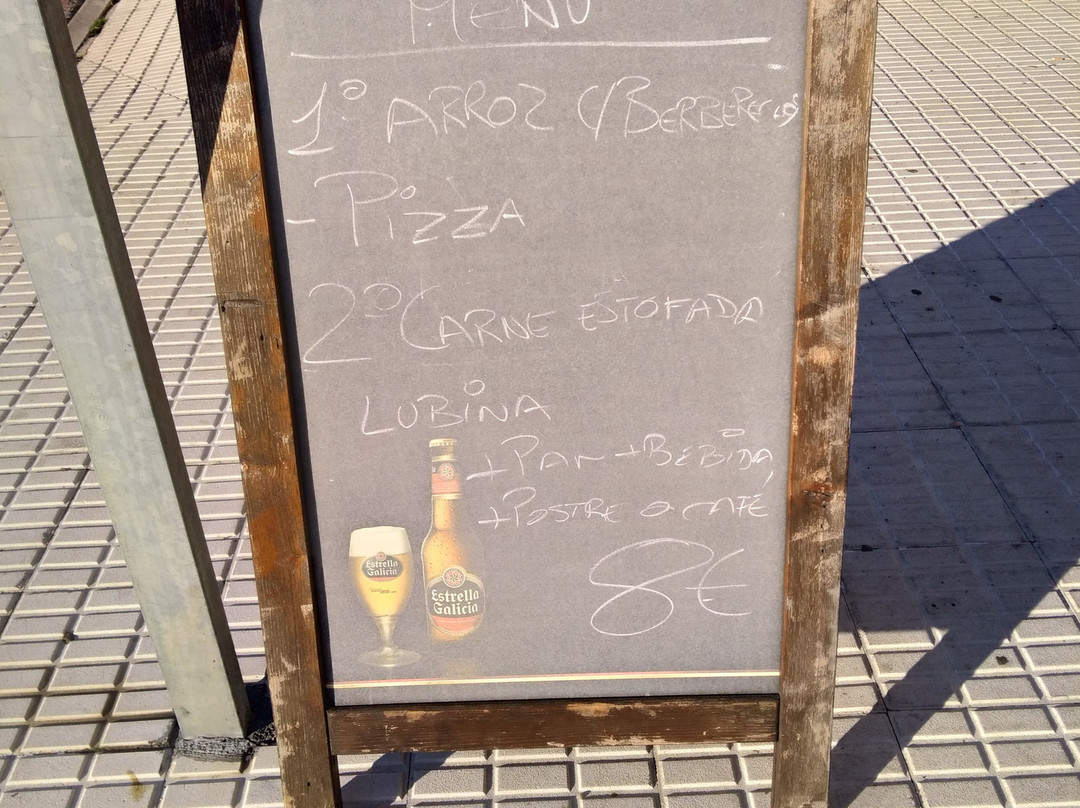 MENU
1º ARROZ C/BERBERECHOS
- PIZZA
2º CARNE ESTOFADA
LUBINA
+ PAN + BEBIDA
+ POSTRE O CAFÉ
8€
Estrella
Galicia
Estrella
Galicia